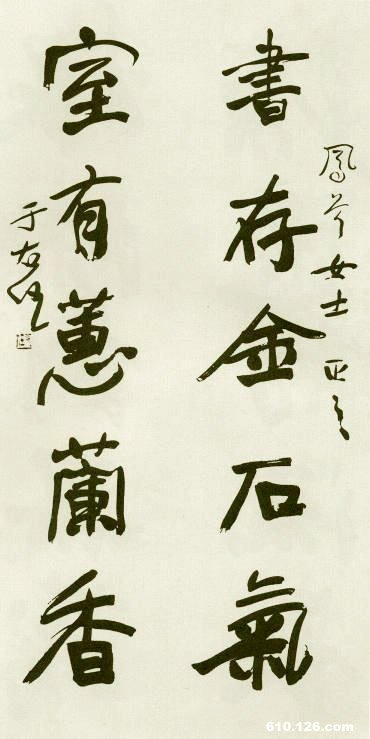 鳳女士 正之
書存金石氣
室有蕙蘭香
于右任
610.126.com